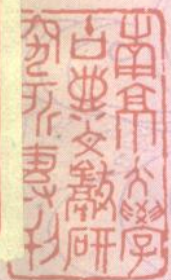 南京大學
古典文獻研
究所專刊